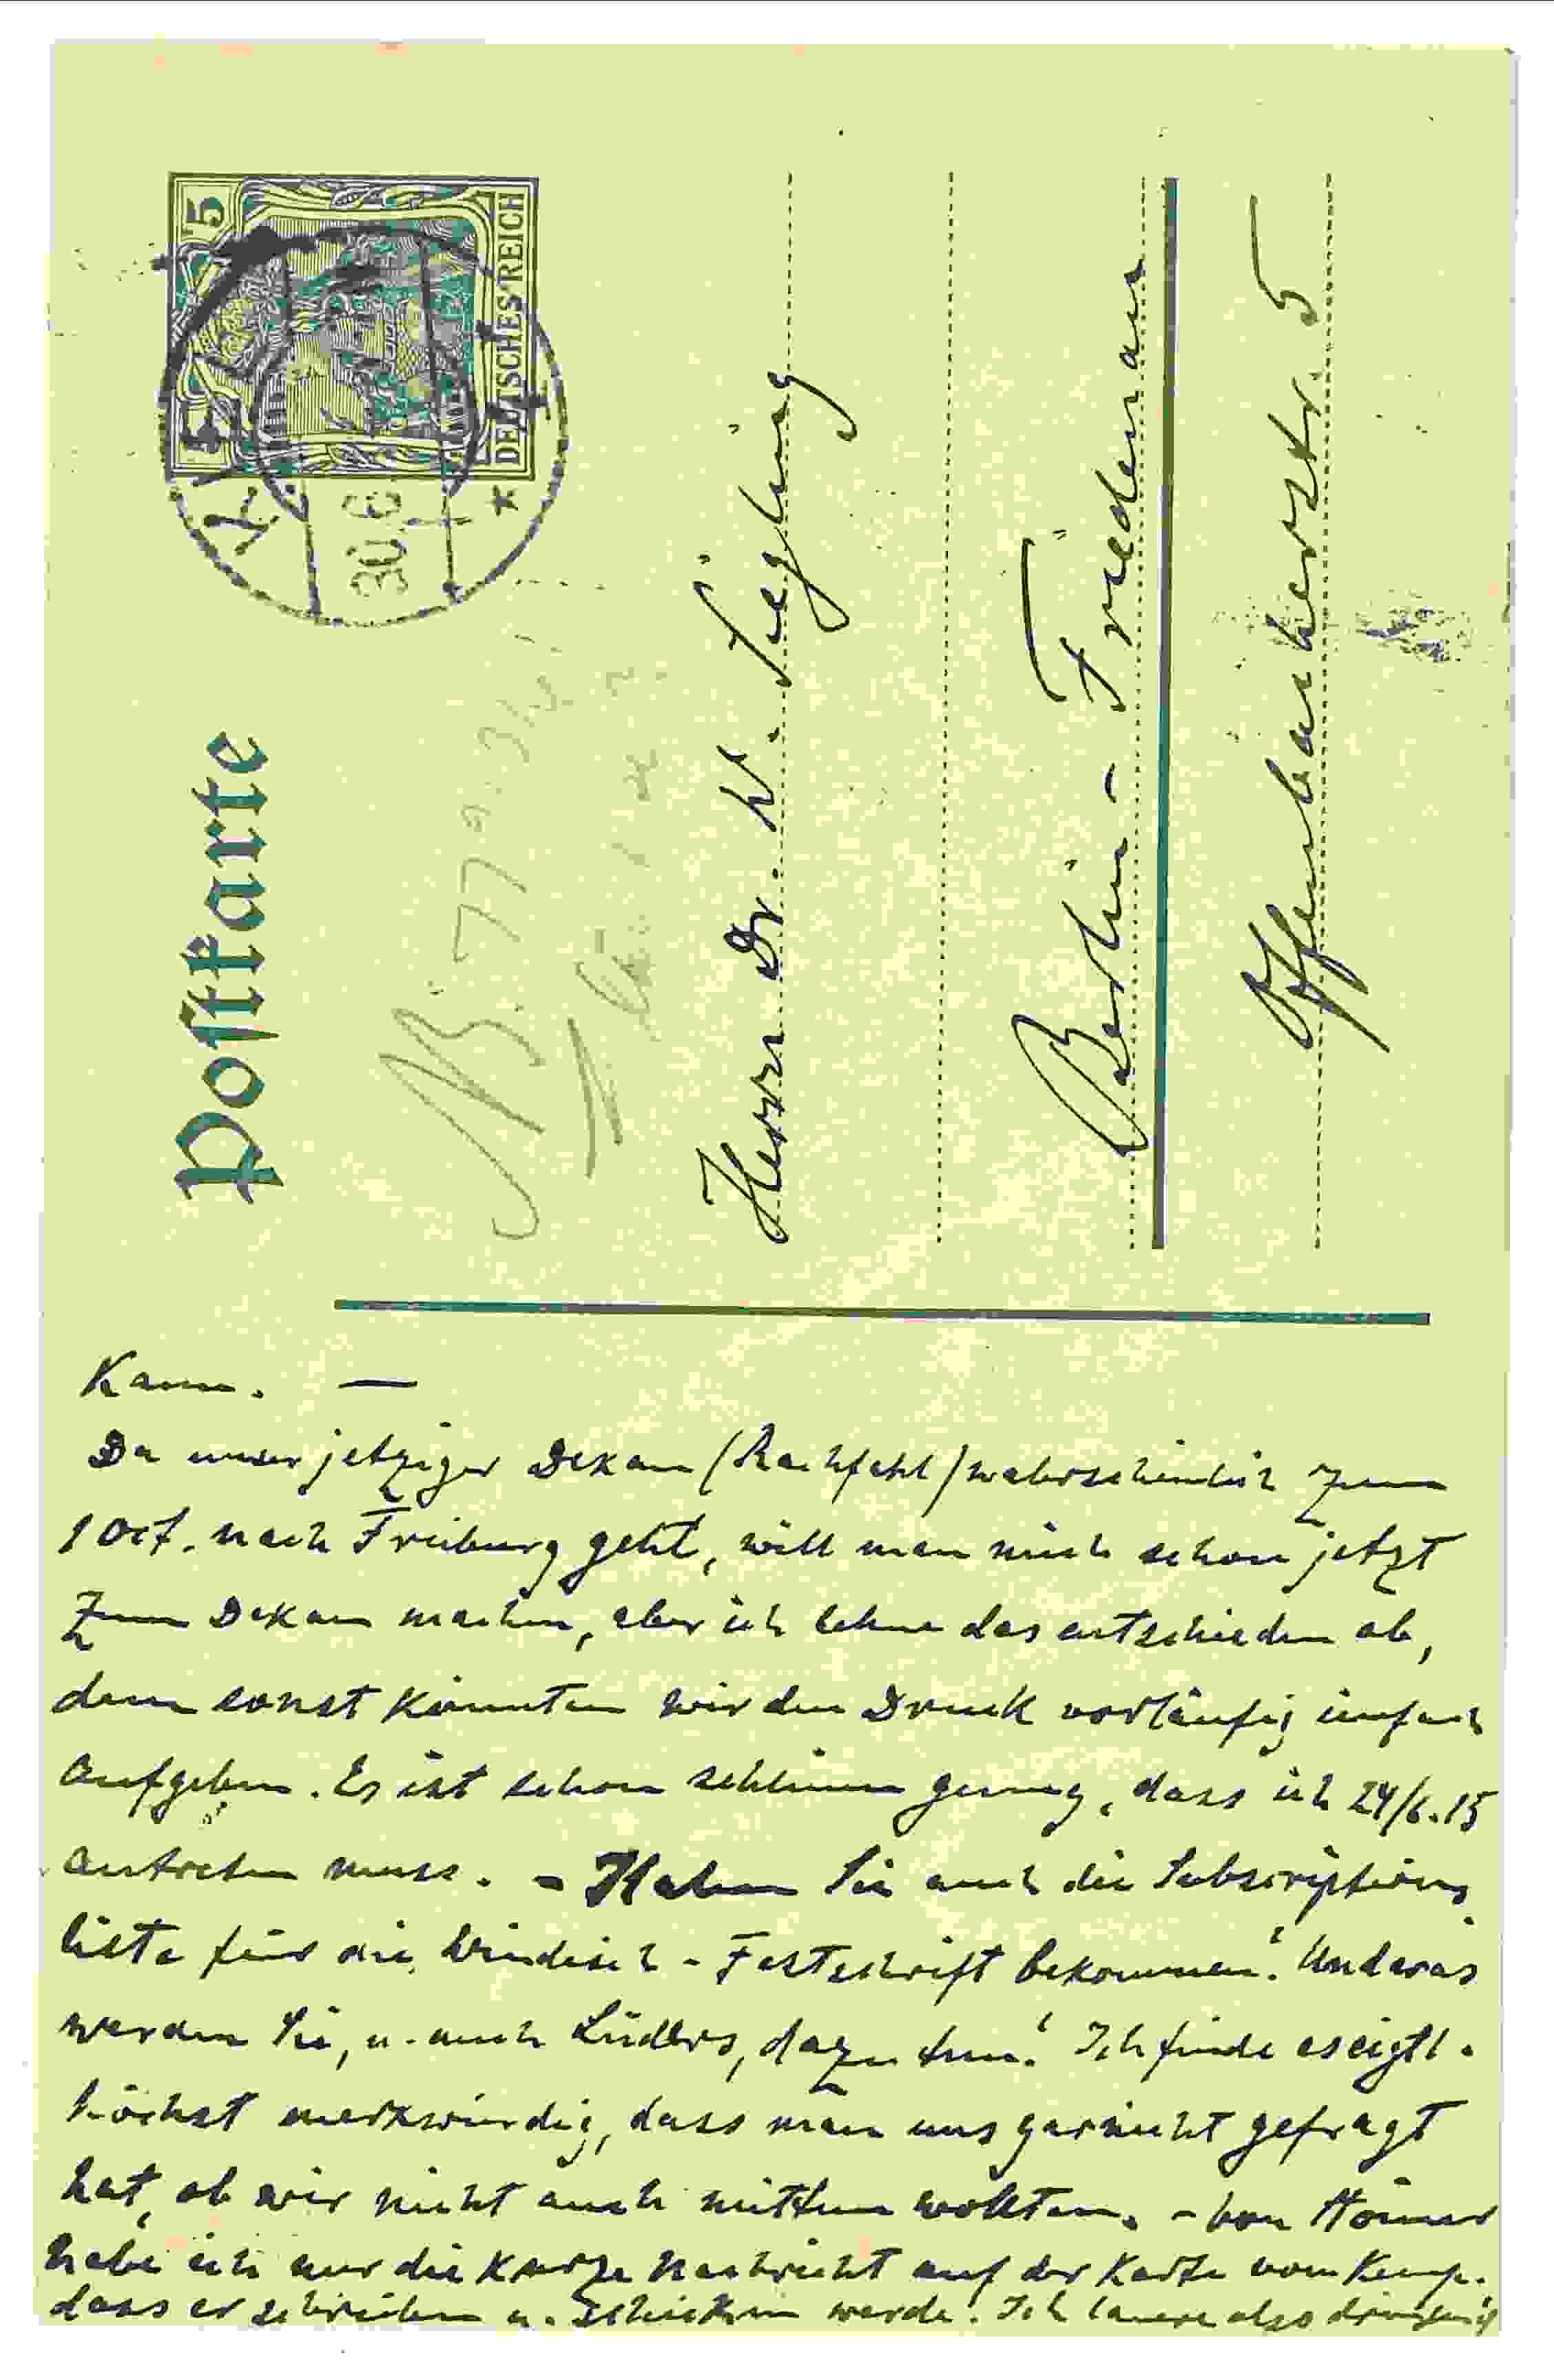 Postkarte
5
DEUTSCHES REICH
30.6
Herrn Dr. W. Siegling
Berlin - Friedenau
Offenbacherstr. 5
Kann. —
Da unser jetziger Dekan (Rachfahl) wahrscheinlich zum
1 Oct. nach Freiburg geht, will man mich schon jetzt
zum Dekan machen, aber ich lehne das entschieden ab,
denn sonst könnten wir den Druck vorläufig einfach
aufgeben. Es ist schon schlimm genug, dass ich 24/6.15
antreten muss. - Haben Sie auch die Subscriptions
liste für die Windisch - Festschrift bekommen? Und was
werden Sie, u. auch Lüders, dazu tun? Ich finde es eigtl.
höchst merkwürdig, dass man uns garnicht gefragt
hat, ob wir nicht auch mittun wollten. - Von
habe ich nur die kurze Nachricht auf der Karte vom
dass er schreiben u. schicken werde. Ich lauere also